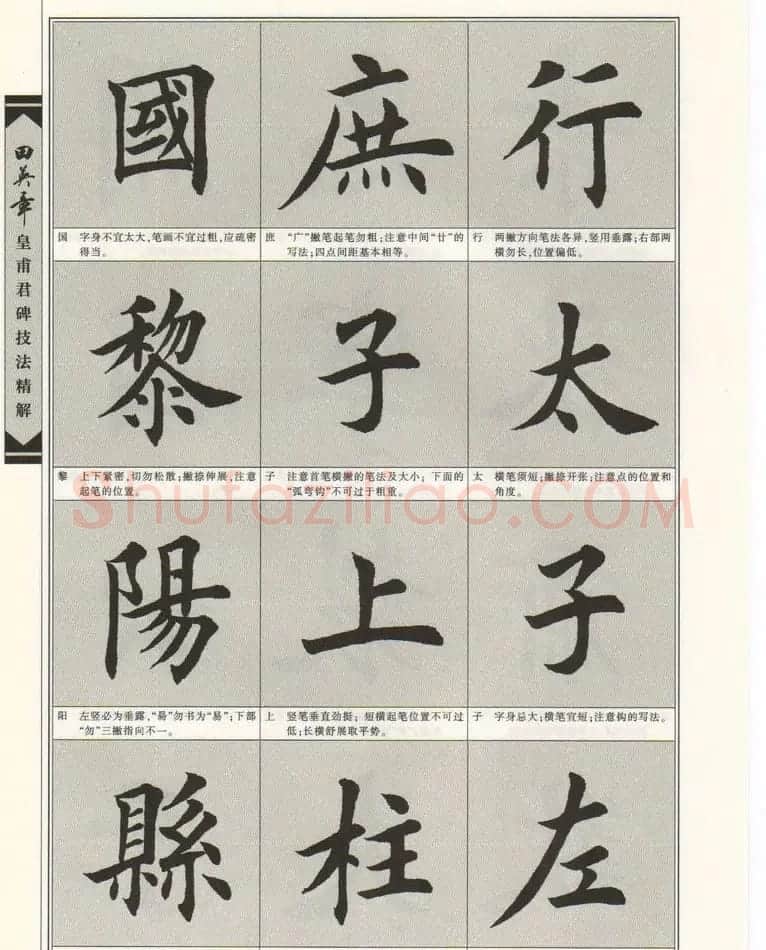 田英章
皇甫君碑技法精解
國
国 字身不宜太大,笔画不宜过粗,应疏密
得当。
庶
庶 “广”撇笔起笔勿粗;注意中间“廿”的
写法;四点间距基本相等。
行
行 两撇方向笔法各异,竖用垂露;右部两
横勿长,位置偏低。
黎
黎 上下紧密,切勿松散;撇捺伸展,注意
起笔的位置。
子
子 注意首笔横撇的笔法及大小;下面的
“弧弯钩”不可过于粗重。
太
太 横笔须短;撇捺开张;注意点的位置和
角度。
Shufaziliao.COM
陽
阳 左竖必为垂露,“昜”勿书为“易”;下部
“勿”三撇指向不一。
上
上 竖笔垂直劲挺;短横起笔位置不可过
低;长横舒展取平势。
子
子 字身忌大;横笔宜短;注意钩的写法。
縣
柱
左